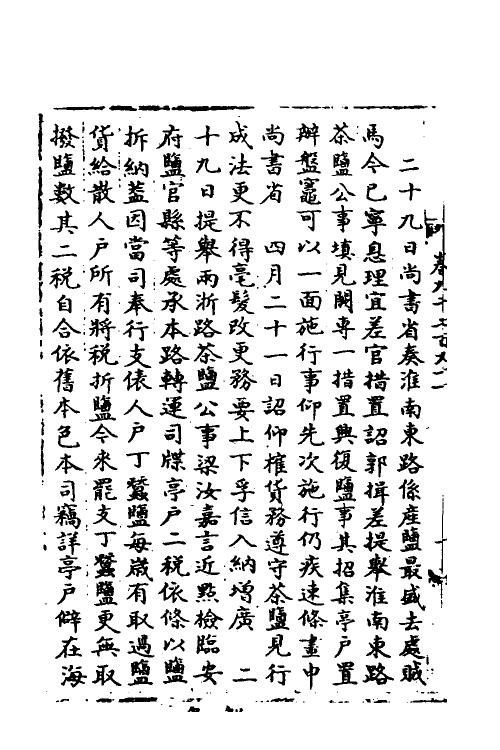 二十九日尚書省奏淮南東路係產鹽最盛去處賊
馬今已寧息理宜差官措置詔郭揖差提舉淮南東路
茶鹽公事填見闕專一措置興復鹽事其招集亭戶置
辦盤竈可以一面施行事仰先次施行仍疾速條畫申
尚書省　四月二十一日詔仰榷貨務遵守茶鹽見行
成法更不得毫髮改更務要上下孚信入納增廣　二
十九日提舉兩浙路茶鹽公事梁汝嘉言近點檢臨安
府鹽官縣等處承本路轉運司牒亭戶二稅依條以鹽
折納蓋因當司奉行支俵人戶丁蠶鹽每歲有取過鹽
貨給散人戶所有將稅折鹽今來罷支丁蠶鹽更無取
撥鹽數其二稅自合依舊本色本司竊詳亭戶僻在海